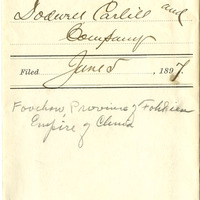 Dodwell Carlill and
Company
Filed June 5, 1897.
Foochow Province of Fohkien
Empire of China